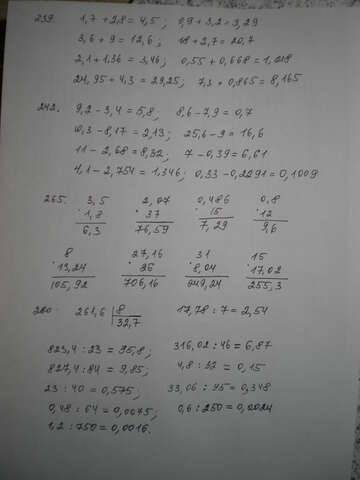 239. 1,7 + 2,8 = 4,5; 0,9 + 3,2 = 3,29
3,6 + 9 = 12,6; 18 + 2,7 = 20,7
2,1 + 1,36 = 3,46; 0,55 + 0,668 = 1,218
24,95 + 4,3 = 29,25; 7,3 + 0,865 = 8,165
242. 9,2 - 3,4 = 5,8; 8,6 - 7,9 = 0,7
10,3 - 8,17 = 2,13; 25,6 - 9 = 16,6
11 - 2,68 = 8,32; 7 - 0,39 = 6,61
4,1 - 2,754 = 1,346; 0,33 - 0,2291 = 0,1009
265. 3,5 2,07 0,486 0,8
· 1,8 · 37 · 15 · 12
6,3 76,59 7,29 9,6
8 27,16 31 15
· 13,24 · 26 · 8,04 · 17,02
105,92 706,16 249,24 255,3
280. 261,6 8 17,78 : 7 = 2,54
32,7
823,4 : 23 = 35,8; 316,02 : 46 = 6,87
827,4 : 84 = 9,85; 4,8 : 32 = 0,15
23 : 40 = 0,575; 33,06 : 95 = 0,348
0,48 : 64 = 0,0075; 0,6 : 250 = 0,0024
1,2 : 750 = 0,0016.